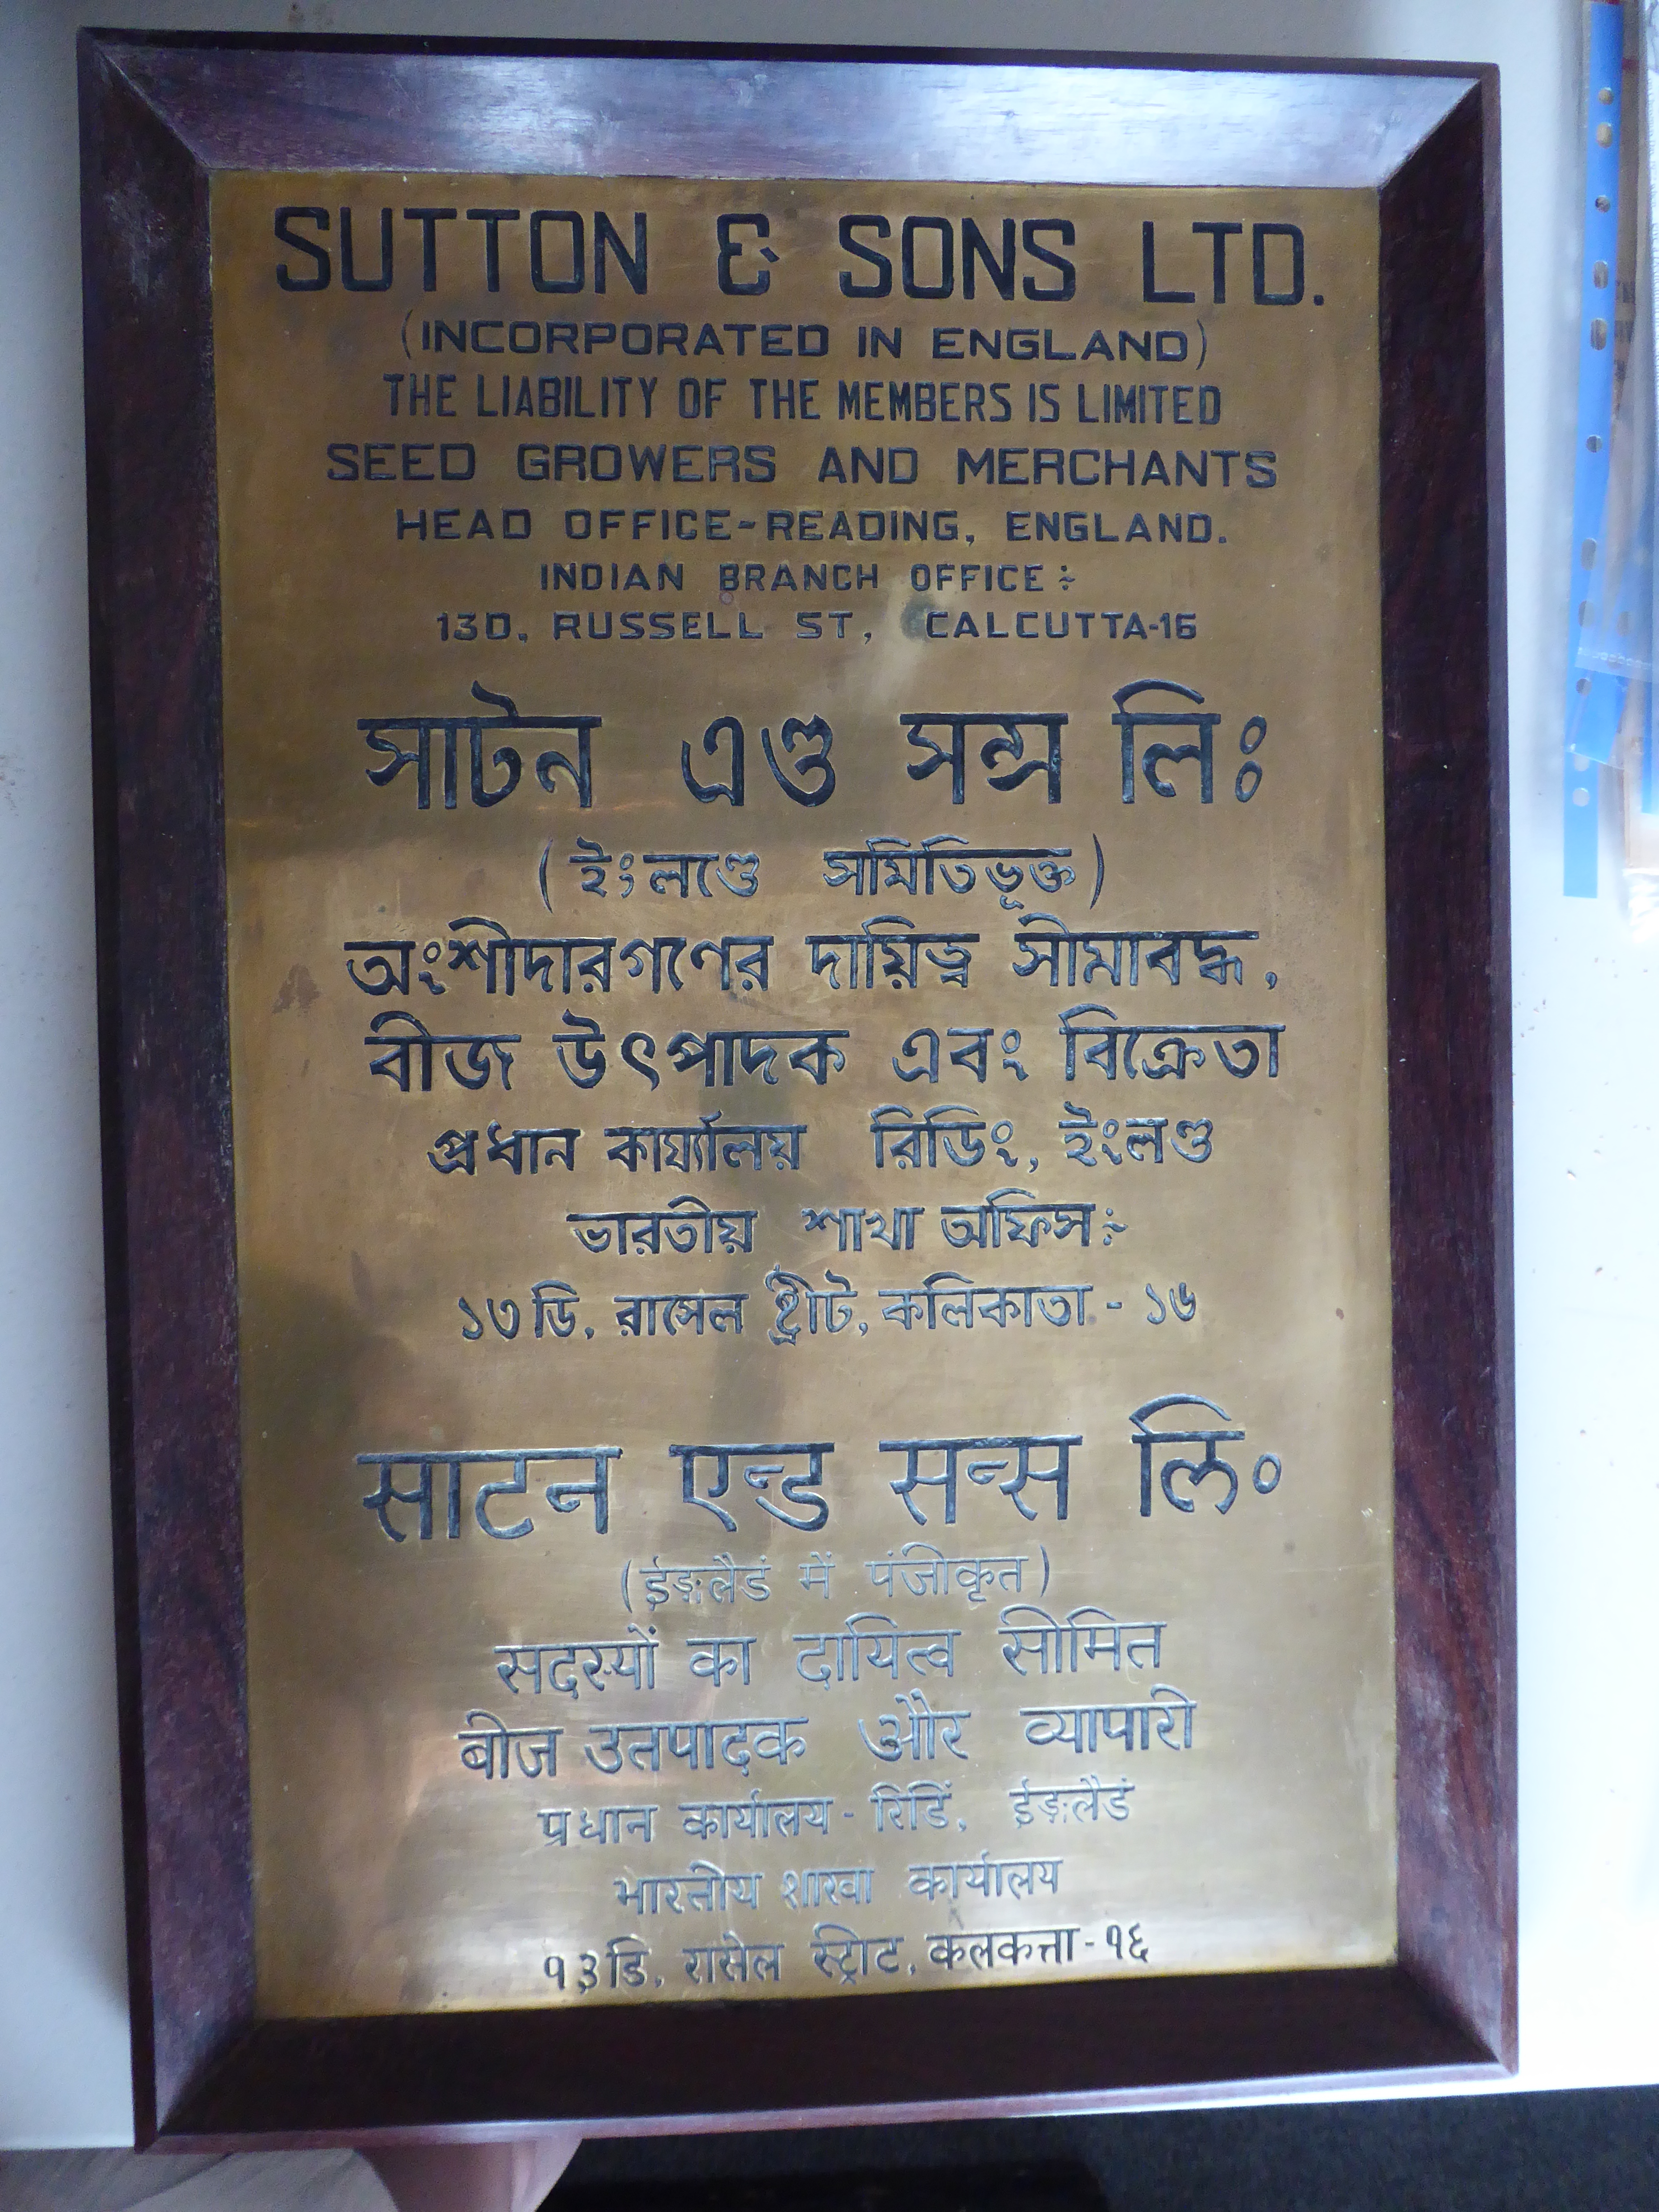 SUTTON & SONS LTD.
(INCORPORATED IN ENGLAND)
THE LIABILITY OF THE MEMBERS IS LIMITED
SEED GROWERS AND MERCHANTS
HEAD OFFICE-READING, ENGLAND.
INDIAN BRANCH OFFICE :-
13D, RUSSELL ST, CALCUTTA-16
সাটন এণ্ড সন্স লিঃ
(ইংলণ্ডে সমিতিভূক্ত)
অংশীদারগণের দায়িত্ব সীমাবদ্ধ,
বীজ উৎপাদক এবং বিক্রেতা
প্রধান কার্য্যালয় রিডিং, ইংলণ্ড
ভারতীয় শাখা অফিস:-
১৩ডি, রাসেল ষ্ট্রীট, কলিকাতা - ১৬
साटन एन्ड सन्स लि॰
(ईङ्गलैडं में पंजीकृत)
सदस्यों का दायित्व सीमित
बीज उतपादक और व्यापारी
प्रधान कार्यालय - रिडिं, ईङ्गलैडं
भारतीय शाखा कार्यालय
१३डि, रासेल स्ट्रीट, कलकत्ता-१६